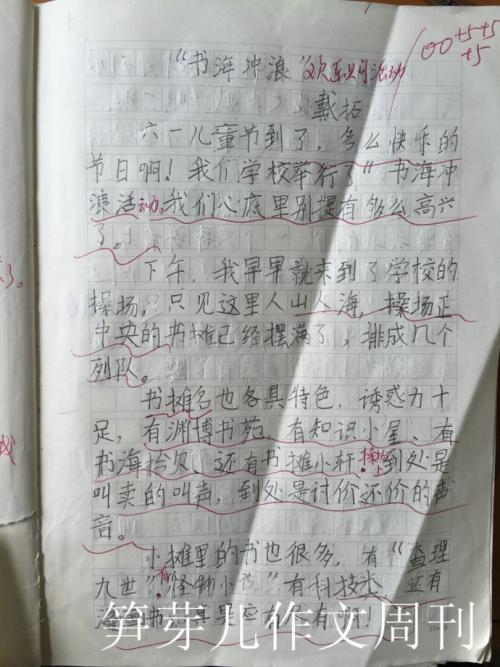 100+5+5
+5
"书海冲浪"欢乐购活动
戴拓
六一儿童节到了，多么快乐的
节日啊！我们学校举行了"书海冲
浪活动，我们心底里别提有多么高兴
了。
下午，我早早就来到了学校的
操场，只见这里人山人海，操场正
中央的书摊已经摆满了，排成几个
列队。
书摊名也各具特色，诱惑力十
足，有渊博书苑、有知识小屋、有
书海拾贝、还有书摊小轩，到处是
叫卖的叫声，到处是讨价还价的声
音。
小摊里的书也很多，有"查理
九世"有科技类 还有
笋芽儿作文周刊